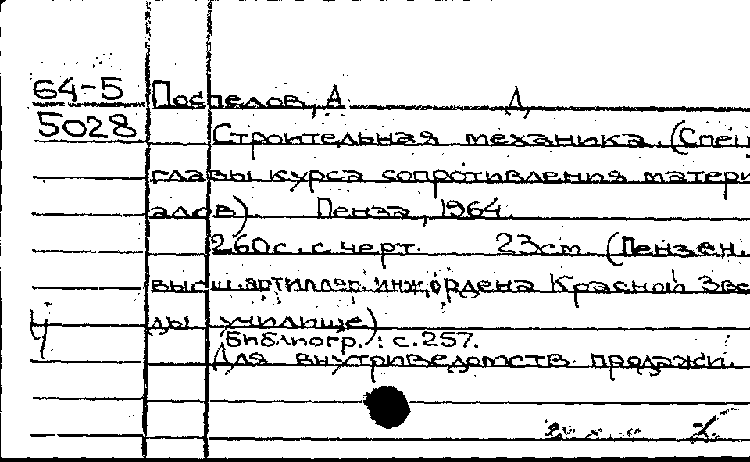 64-5
Поспелов, А Д
5028
Строительная механика. (Спец
главы курса сопротивления матери
алов). Пенза, 1964.
260с. с черт. 23см. (Пензен.
высш. артиллер. инж. ордена Красной Зве
ды училище)
Библиогр.: с.257.
Для внутриведомств. продажи.